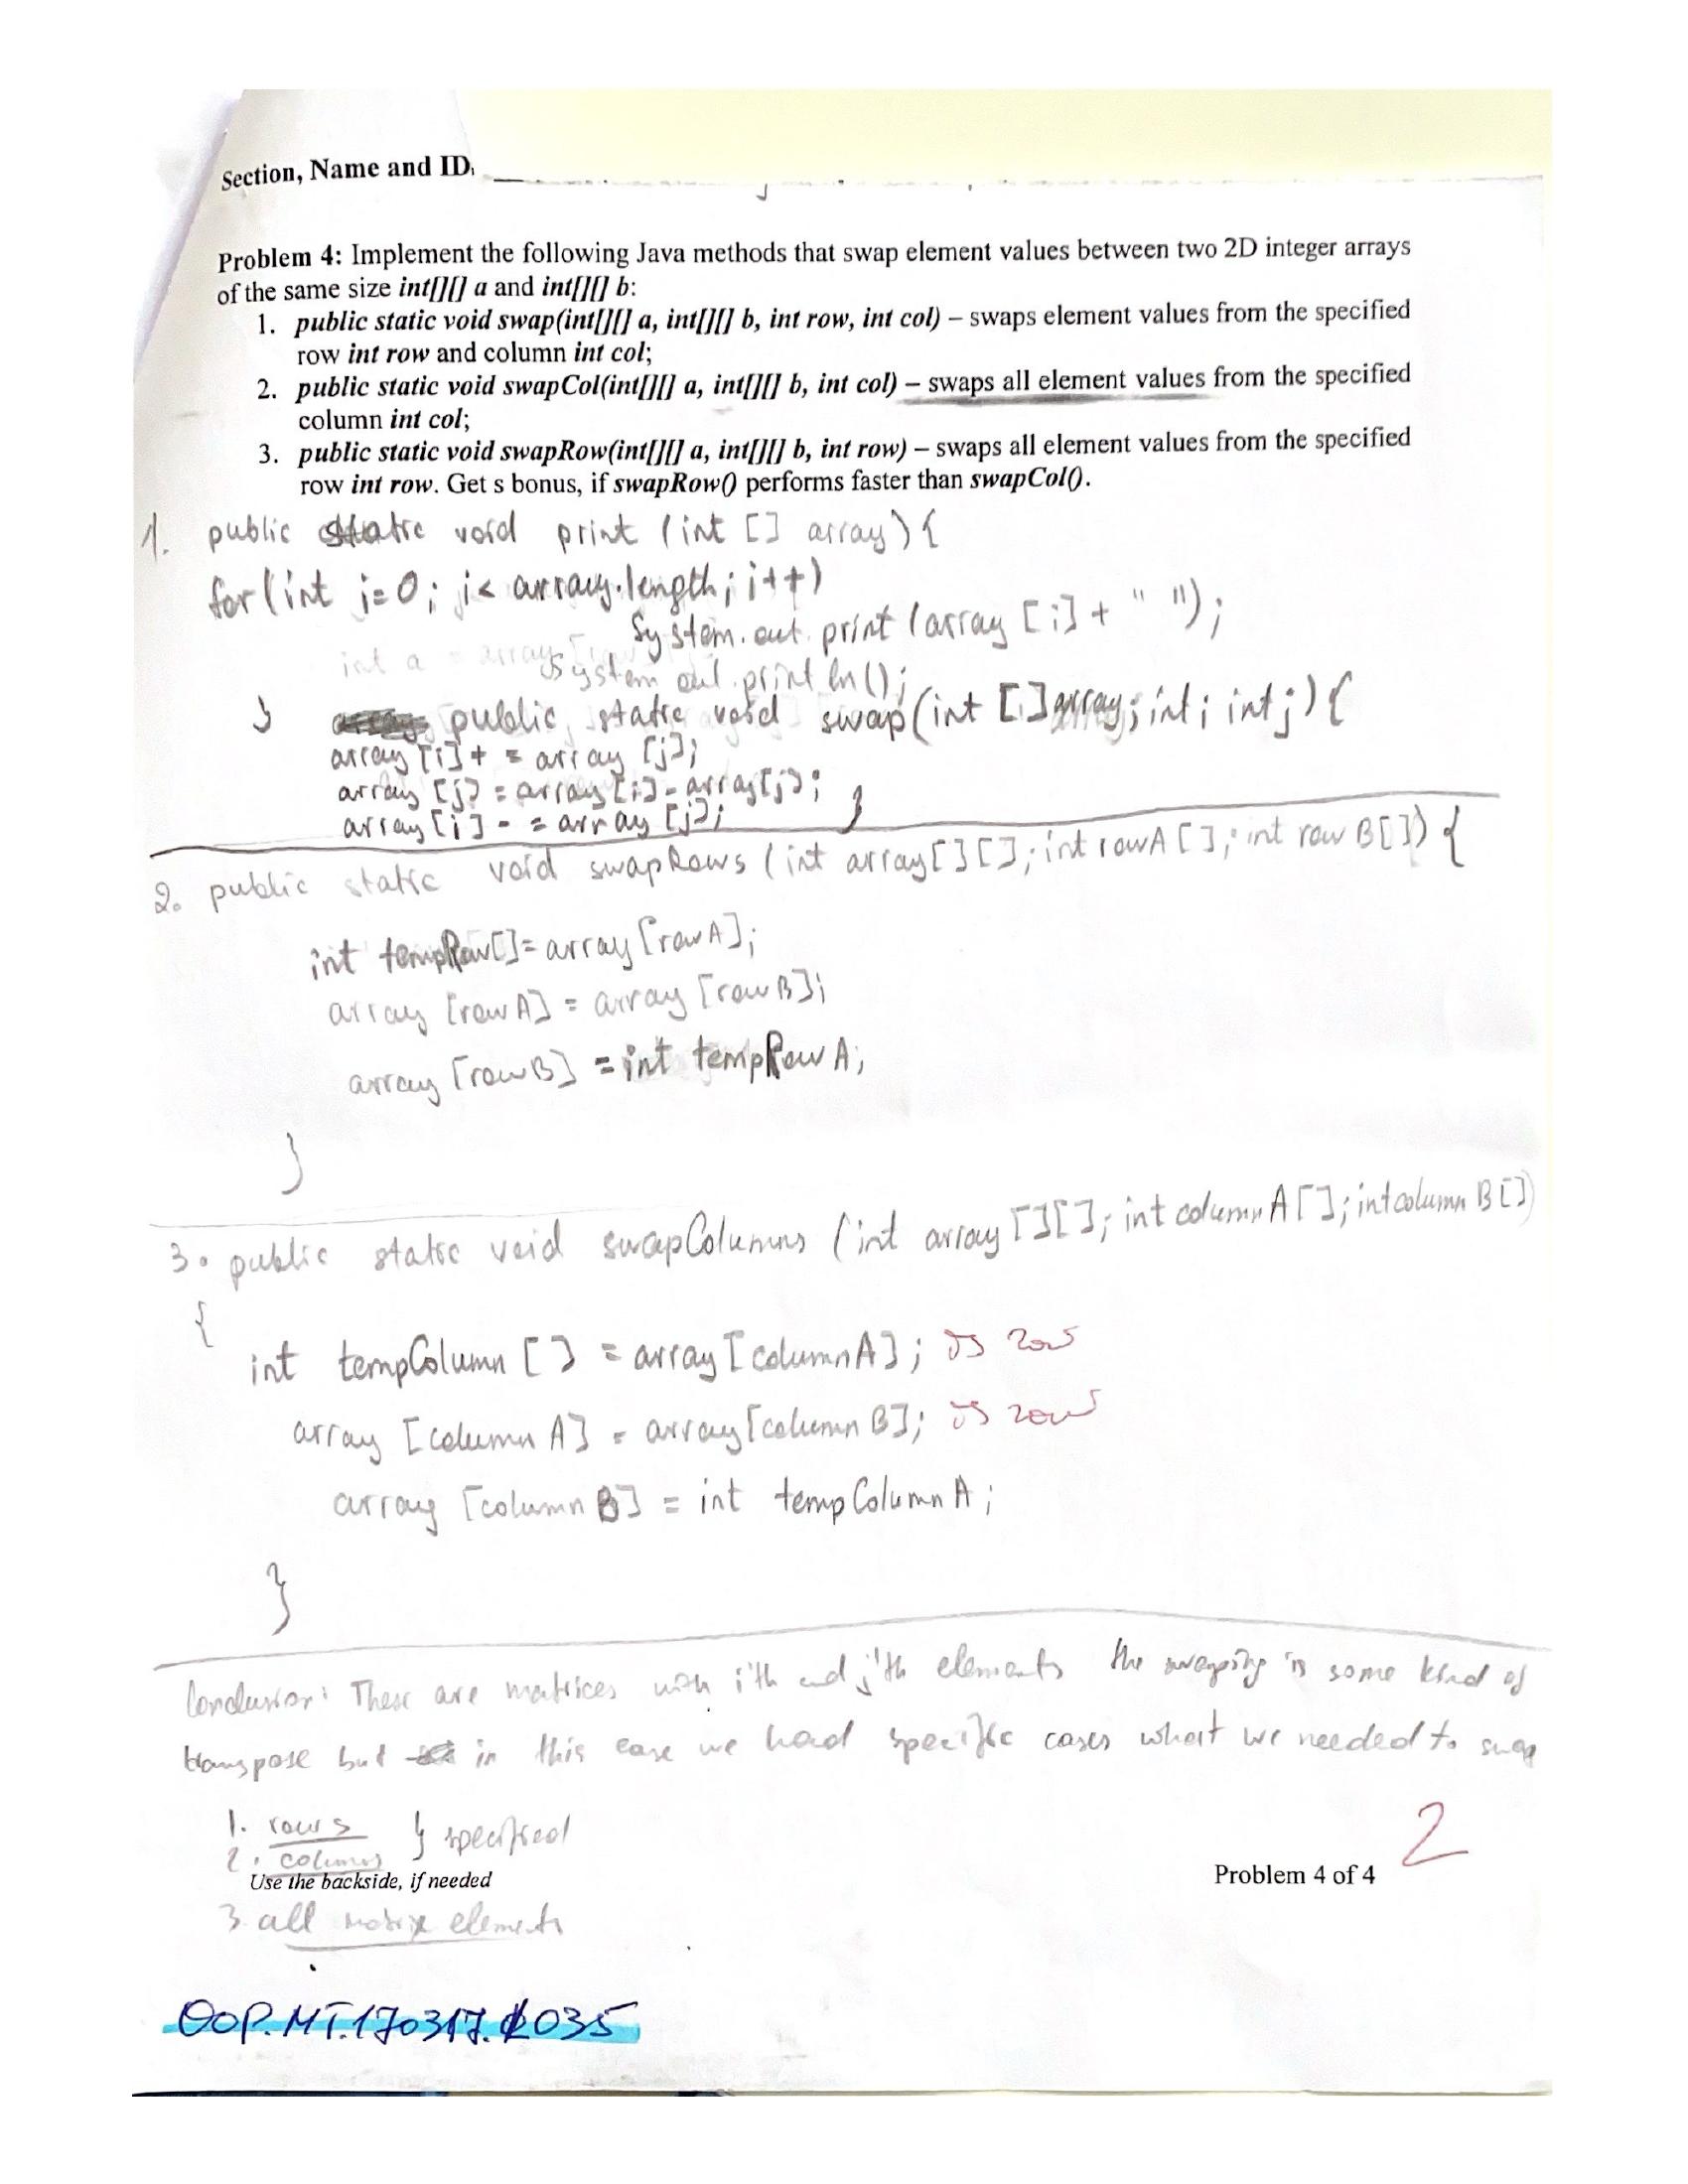 Section, Name and ID:
Problem 4: Implement the following Java methods that swap element values between two 2D integer arrays
of the same size int[][] a and int[][] b:
1. public static void swap(int[][] a, int[][] b, int row, int col) – swaps element values from the specified
row int row and column int col;
2. public static void swapCol(int[][] a, int[][] b, int col) – swaps all element values from the specified
column int col;
3. public static void swapRow(int[][] a, int[][] b, int row) – swaps all element values from the specified
row int row. Get s bonus, if swapRow() performs faster than swapCol().
1. public static void print (int [] array) {
for (int i=0; i< array.length; i++)
System.out.print (array [i] + " ");
int a = array[
System out.println();
} public static void swap(int [] array; int i int j) {
array [i] + = array [j];
array [j] = array [i] - array [j];
array [i] - = array [j]; }
2. public static void swapRows (int array[][]; int rowA []; int rowB[]) {
int tempRow[]= array [rowA];
array [rowA] = array [rowB];
array [rowB] = int tempRowA;
}
3. public static void swapColumns (int array [][]; int columnA []; int columnB [])
{
int tempColumn [] = array [columnA]; is row
array [columnA] = array [columnB]; is row
array [columnB] = int tempColumnA;
}
Conclusion: These are matrices with i'th and j'th elements the swaping is some kind of
transpose but in this case we had specific cases what we needed to swap
1. rows } specified
2. columns
Use the backside, if needed
Problem 4 of 4
2
3. all matrix elements
OOP.MT.170317.R035